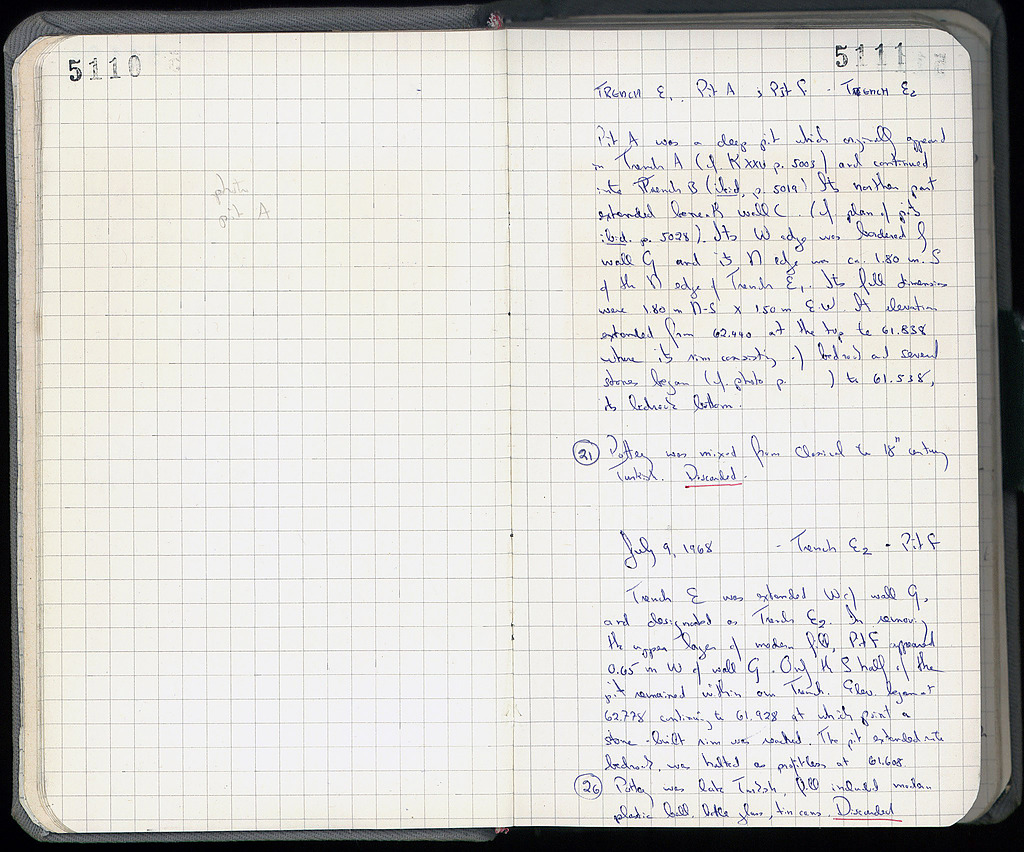 5110
5111
TRENCH E1, Pit A ; Pit F - TRENCH E2
Pit A was a deep pit which originally appeared
in Trench A (cf. K XXV p. 5003) and continued
into Trench B (ibid, p. 5019) Its northern part
extended beneath wall C. (cf plan of pits
ibid. p. 5028). Its W edge was bordered by
wall G and its N edge was ca. 1.80 m. S
of the N edge of Trench E1. Its full dimensions
were 1.80 m N-S x 1.50 m E-W. At elevation
extended from 62.440 at the top to 61.838
where its rim consisting of bedrock and several
stones began (cf. photo p. ) to 61.538,
its bedrock bottom.
21 Pottery was mixed from Classical to 18th century
Turkish. Discarded.
July 9, 1968 - Trench E2 - Pit F
Trench E was extended W of wall G,
and designated as Trench E2. In removing
the upper layer of modern fill, Pit F appeared
0.65 m W of wall G. Only the S half of the
pit remained within our Trench. Elev. began at
62.778 continuing to 61.928 at which point a
stone-built rim was reached. The pit extended into
bedrock, was halted as profitless at 61.608
26 Pottery was late Turkish, fill included modern
plastic ball, bottle glass, tin cans. Discarded